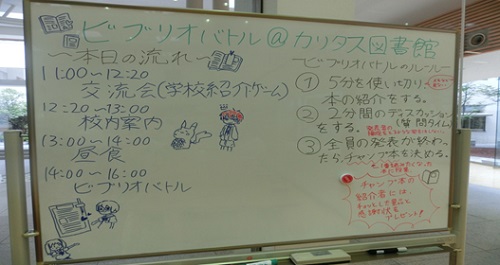 ビブリオバトル@カリタス図書館
～本日の流れ～
11:00～12:20
交流会(学校紹介ゲーム)
12:20～13:00
校内案内
13:00～14:00
昼食
14:00～16:00
ビブリオバトル
～ビブリオバトルのルール～
① 5分を使い切り、
本の紹介をする。
② 2分間のディスカッション
をする。(質問タイム)
③ 全員の発表が終わっ
たらチャンプ本を決める。
チャンプ本の
紹介者には
ちょっとした賞品と
感謝状を
プレゼント!